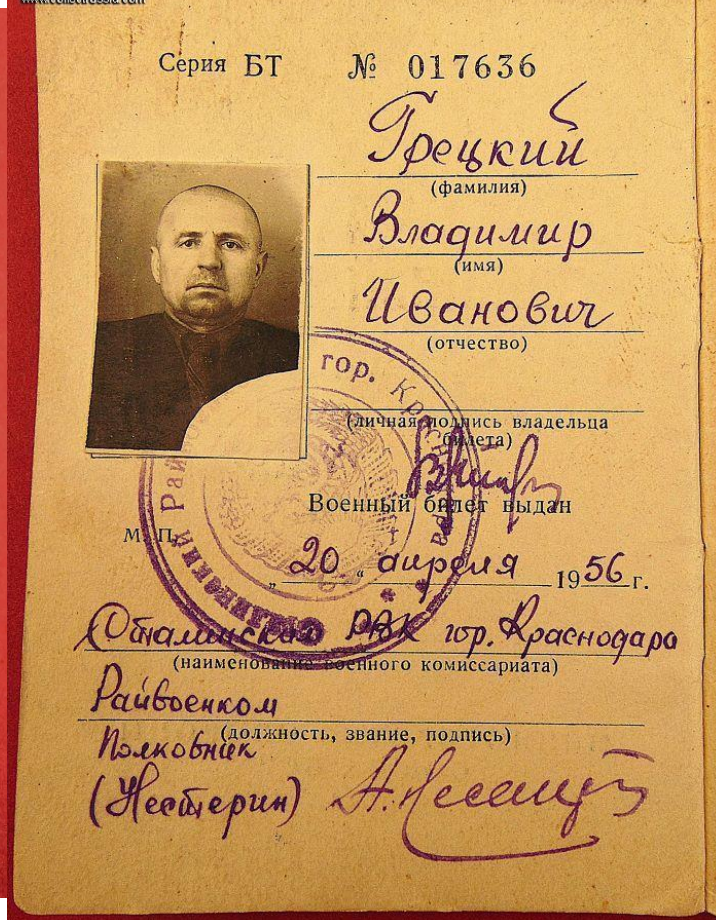 www.collectrussia.com
Серия БТ № 017636
Грецкий
(фамилия)
Владимир
(имя)
Иванович
(отчество)
(личная подпись владельца
билета)
Военный билет выдан
М. П.
„ 20 “ апреля 1956 г.
Сталинский РВК гор. Краснодара
(наименование военного комиссариата)
Райвоенком
(должность, звание, подпись)
Полковник
(Нестерин)
гор. Краснодара
Сталинский Рай